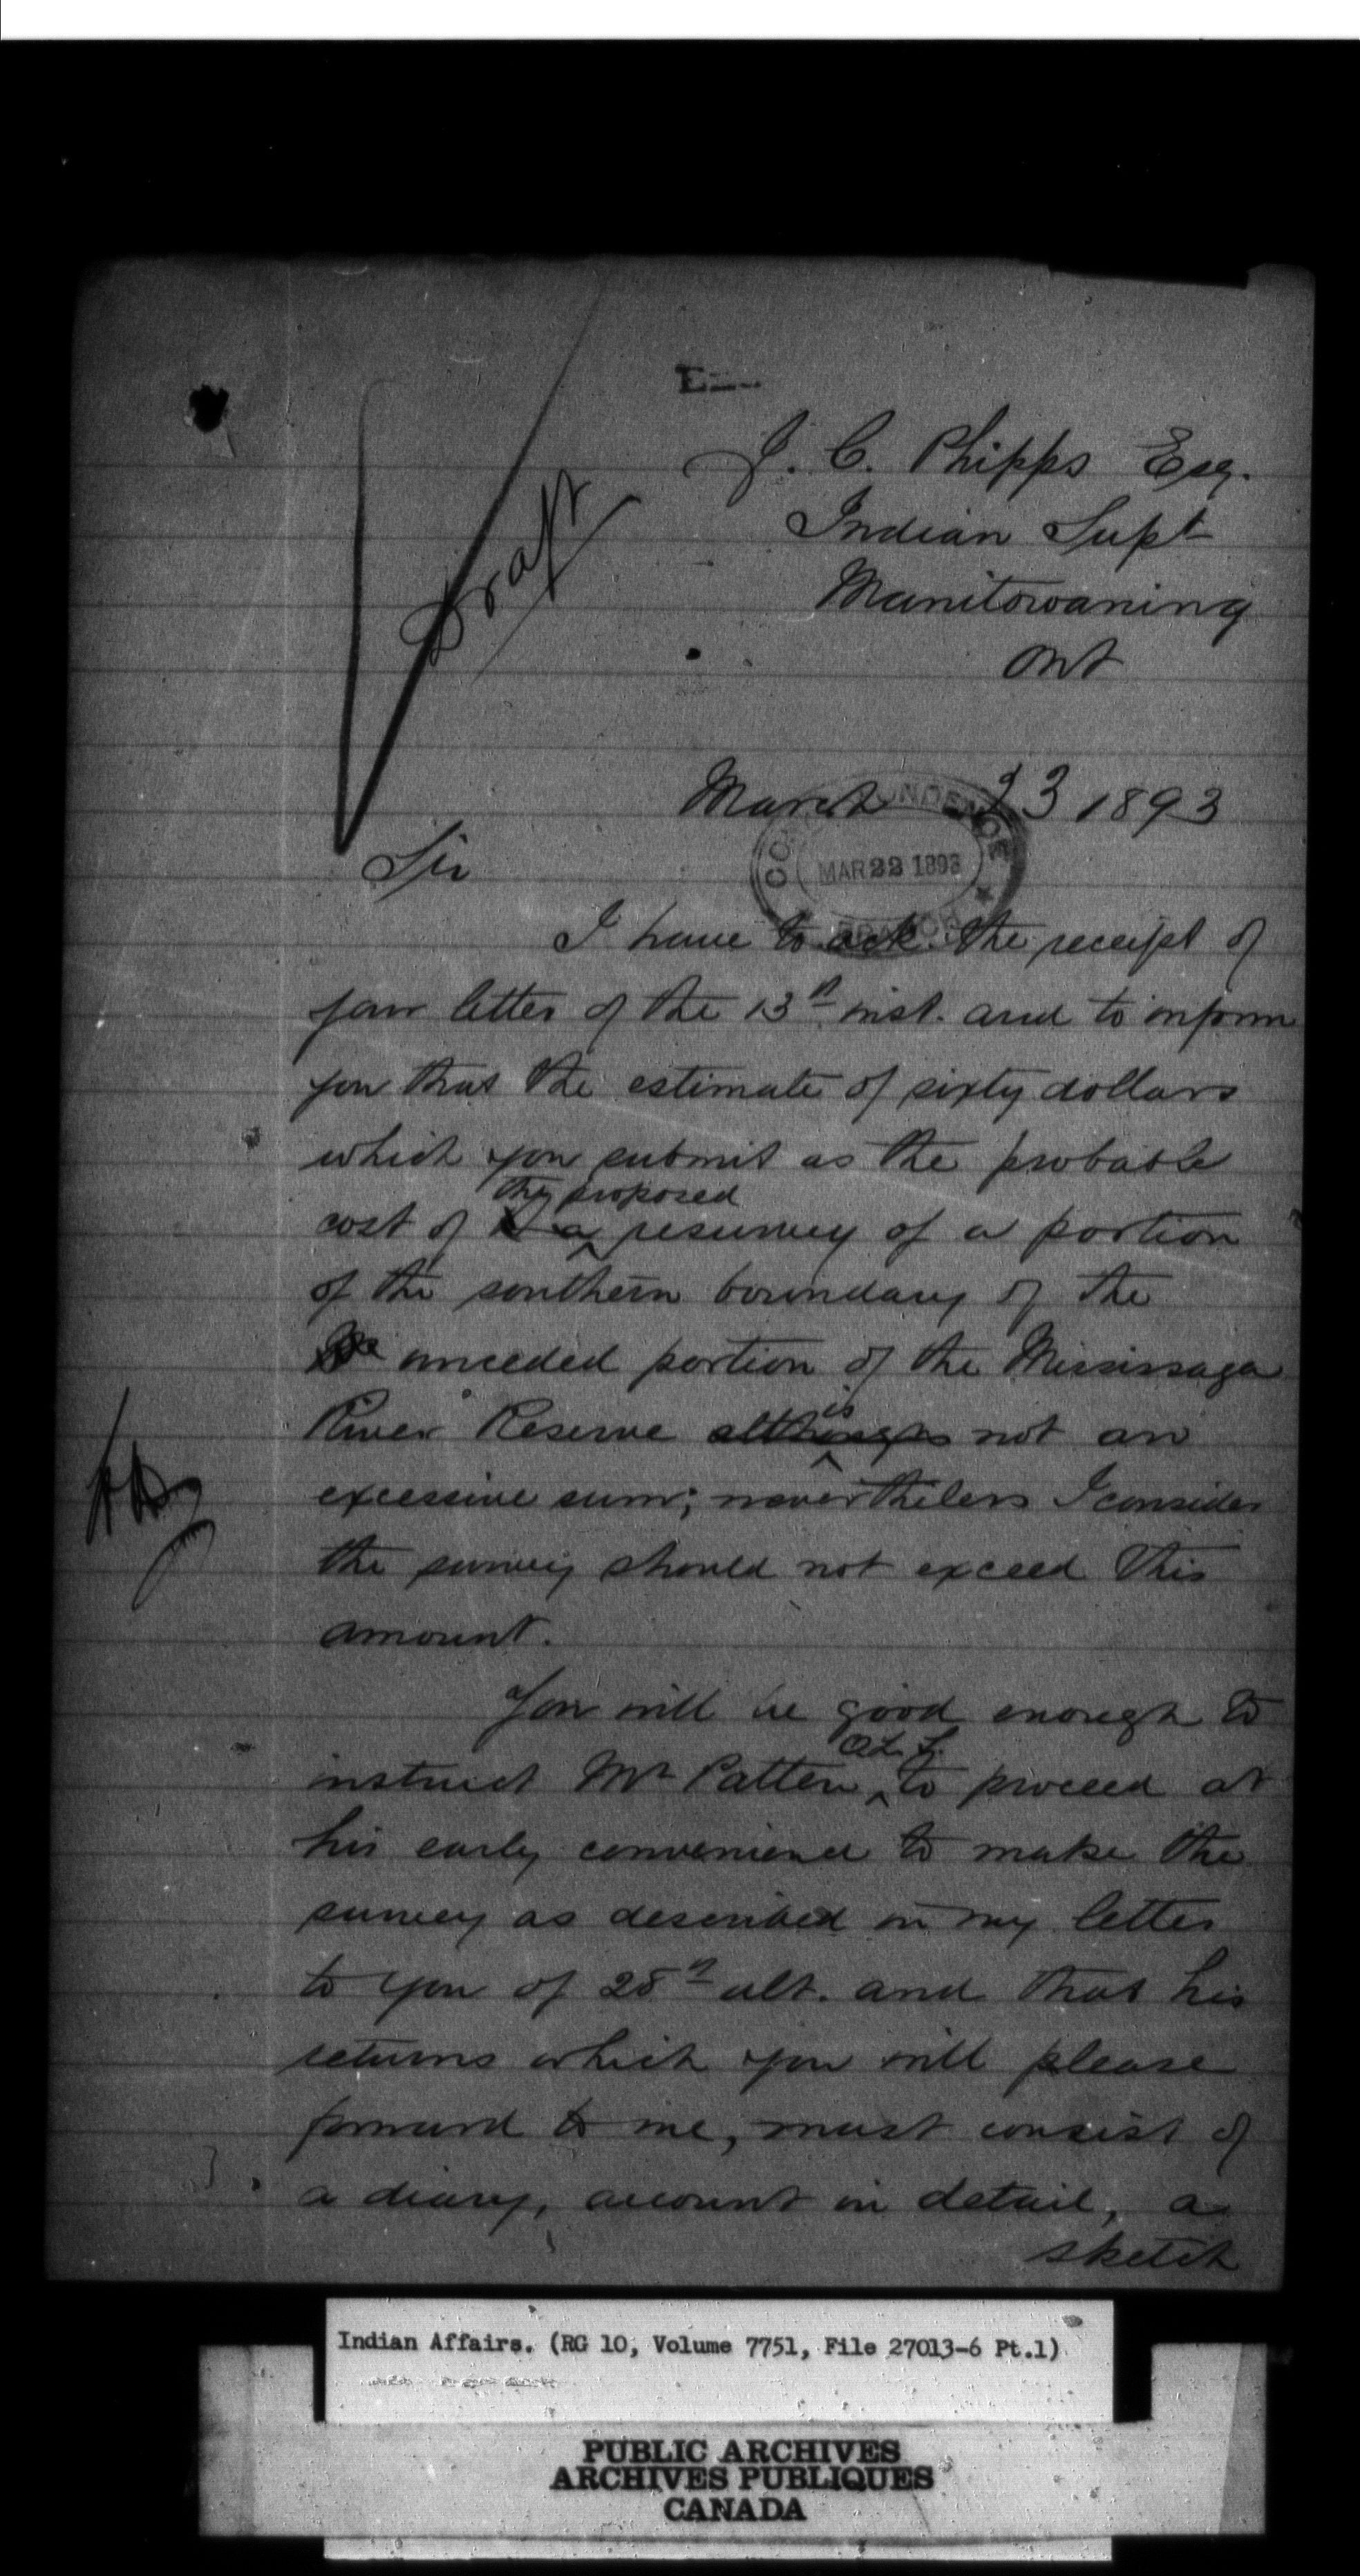 J. C. Phipps Esq.
Indian Supt
Manitowaning
Ont
Draft
March 23 1893
CORRESPONDENCE
MAR 22 1893
BRANCH
Sir
I have to ack. the receipt of
your letter of the 13th inst. and to inform
you that the estimate of sixty dollars
which you submit as the probable
the proposed
cost of a resurvey of a portion
of the southern boundary of the
unceded portion of the Mississaga
is
River Reserve although not an
excessive sum; nevertheless I consider
the survey should not exceed this
amount.
You will be good enough to
O.L.S.
instruct Mr Patten, to proceed at
his early convenience to make the
survey as described in my letter
to you of 28th ult. and that his
returns which you will please
forward to me, must consist of
a diary, account in detail, a
sketch
Indian Affairs. (RG 10, Volume 7751, File 27013-6 Pt.1)
PUBLIC ARCHIVES
ARCHIVES PUBLIQUES
CANADA